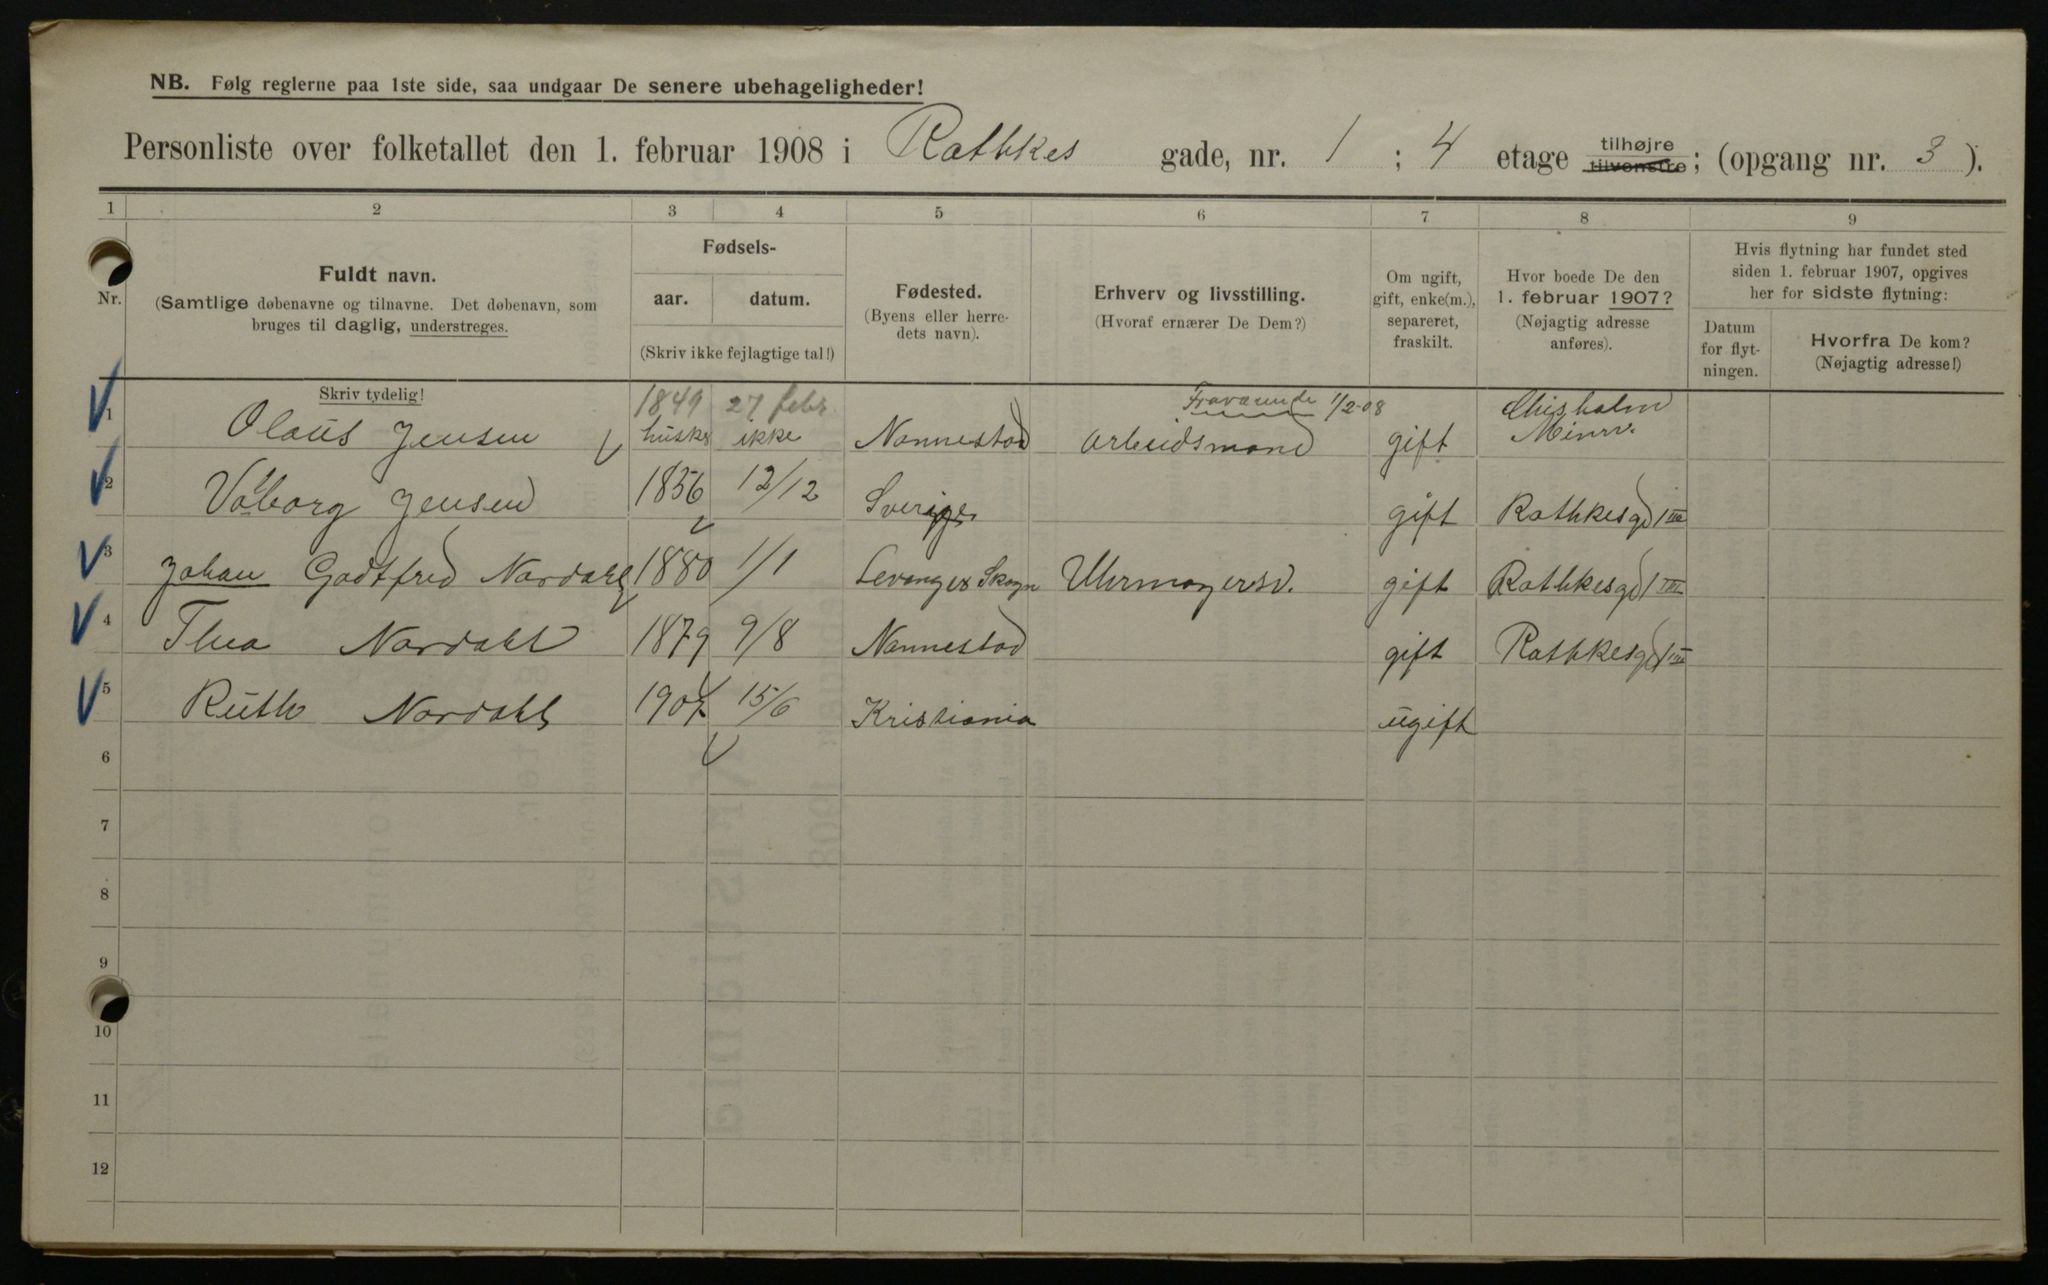 NB. Følg reglerne paa 1ste side, saa undgaar De senere ubehageligheder!
Personliste over folketallet den 1. februar 1908 i Rathkes gade, nr. 1 ; 4 etage tilhøjre tilvenstre; (opgang nr. 3 ).
1 2 3 4 5 6 7 8 9
Nr.
Fuldt navn.
(Samtlige døbenavne og tilnavne. Det døbenavn, som
bruges til daglig, understreges.
Skriv tydelig!
Fødsels-
aar. datum.
(Skriv ikke fejlagtige tal!)
Fødested.
(Byens eller herre-
dets navn).
Erhverv og livsstilling.
(Hvoraf ernærer De Dem?)
Om ugift,
gift, enke(m.),
separeret,
fraskilt.
Hvor boede De den
1. februar 1907?
(Nøjagtig adresse
anføres).
Hvis flytning har fundet sted
siden 1. februar 1907, opgives
her for sidste flytning:
Datum
for flyt-
ningen.
Hvorfra De kom?
(Nøjagtig adresse!)
1849 27 febr. Fraværende 1/2-08
1 Olaus Jensen husker ikke Nannestad Arbeidsmand gift Minnv.
2 Valborg Jensen 1856 12/12 Sverige gift Rathkesgd 1
3 Johan Godtfred Nordahl 1880 1/1 Levanger Skogn Uhrmagersv. gift Rathkesgd 1 III
4 Thea Nordahl 1879 9/8 Nannestad gift Rathkesgd 1 III
5 Ruth Nordahl 1907 15/6 Kristiania ugift
6
7
8
9
10
11
12